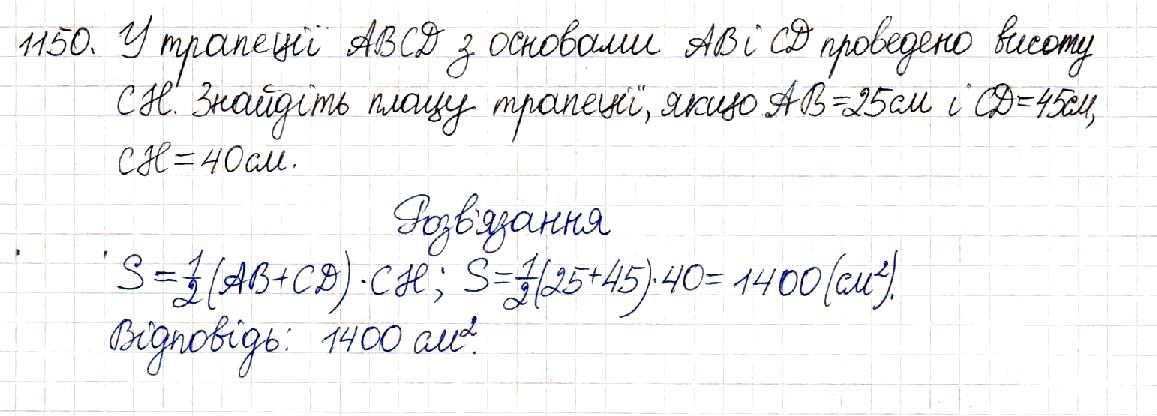 1150. У трапеції ABCD з основами AB і CD проведено висоту
CH. Знайдіть площу трапеції, якщо AB=25см і CD=45см,
CH=40см.
Розв'язання
S=1/2(AB+CD)·CH; S=1/2(25+45)·40=1400(см²).
Відповідь: 1400 см².